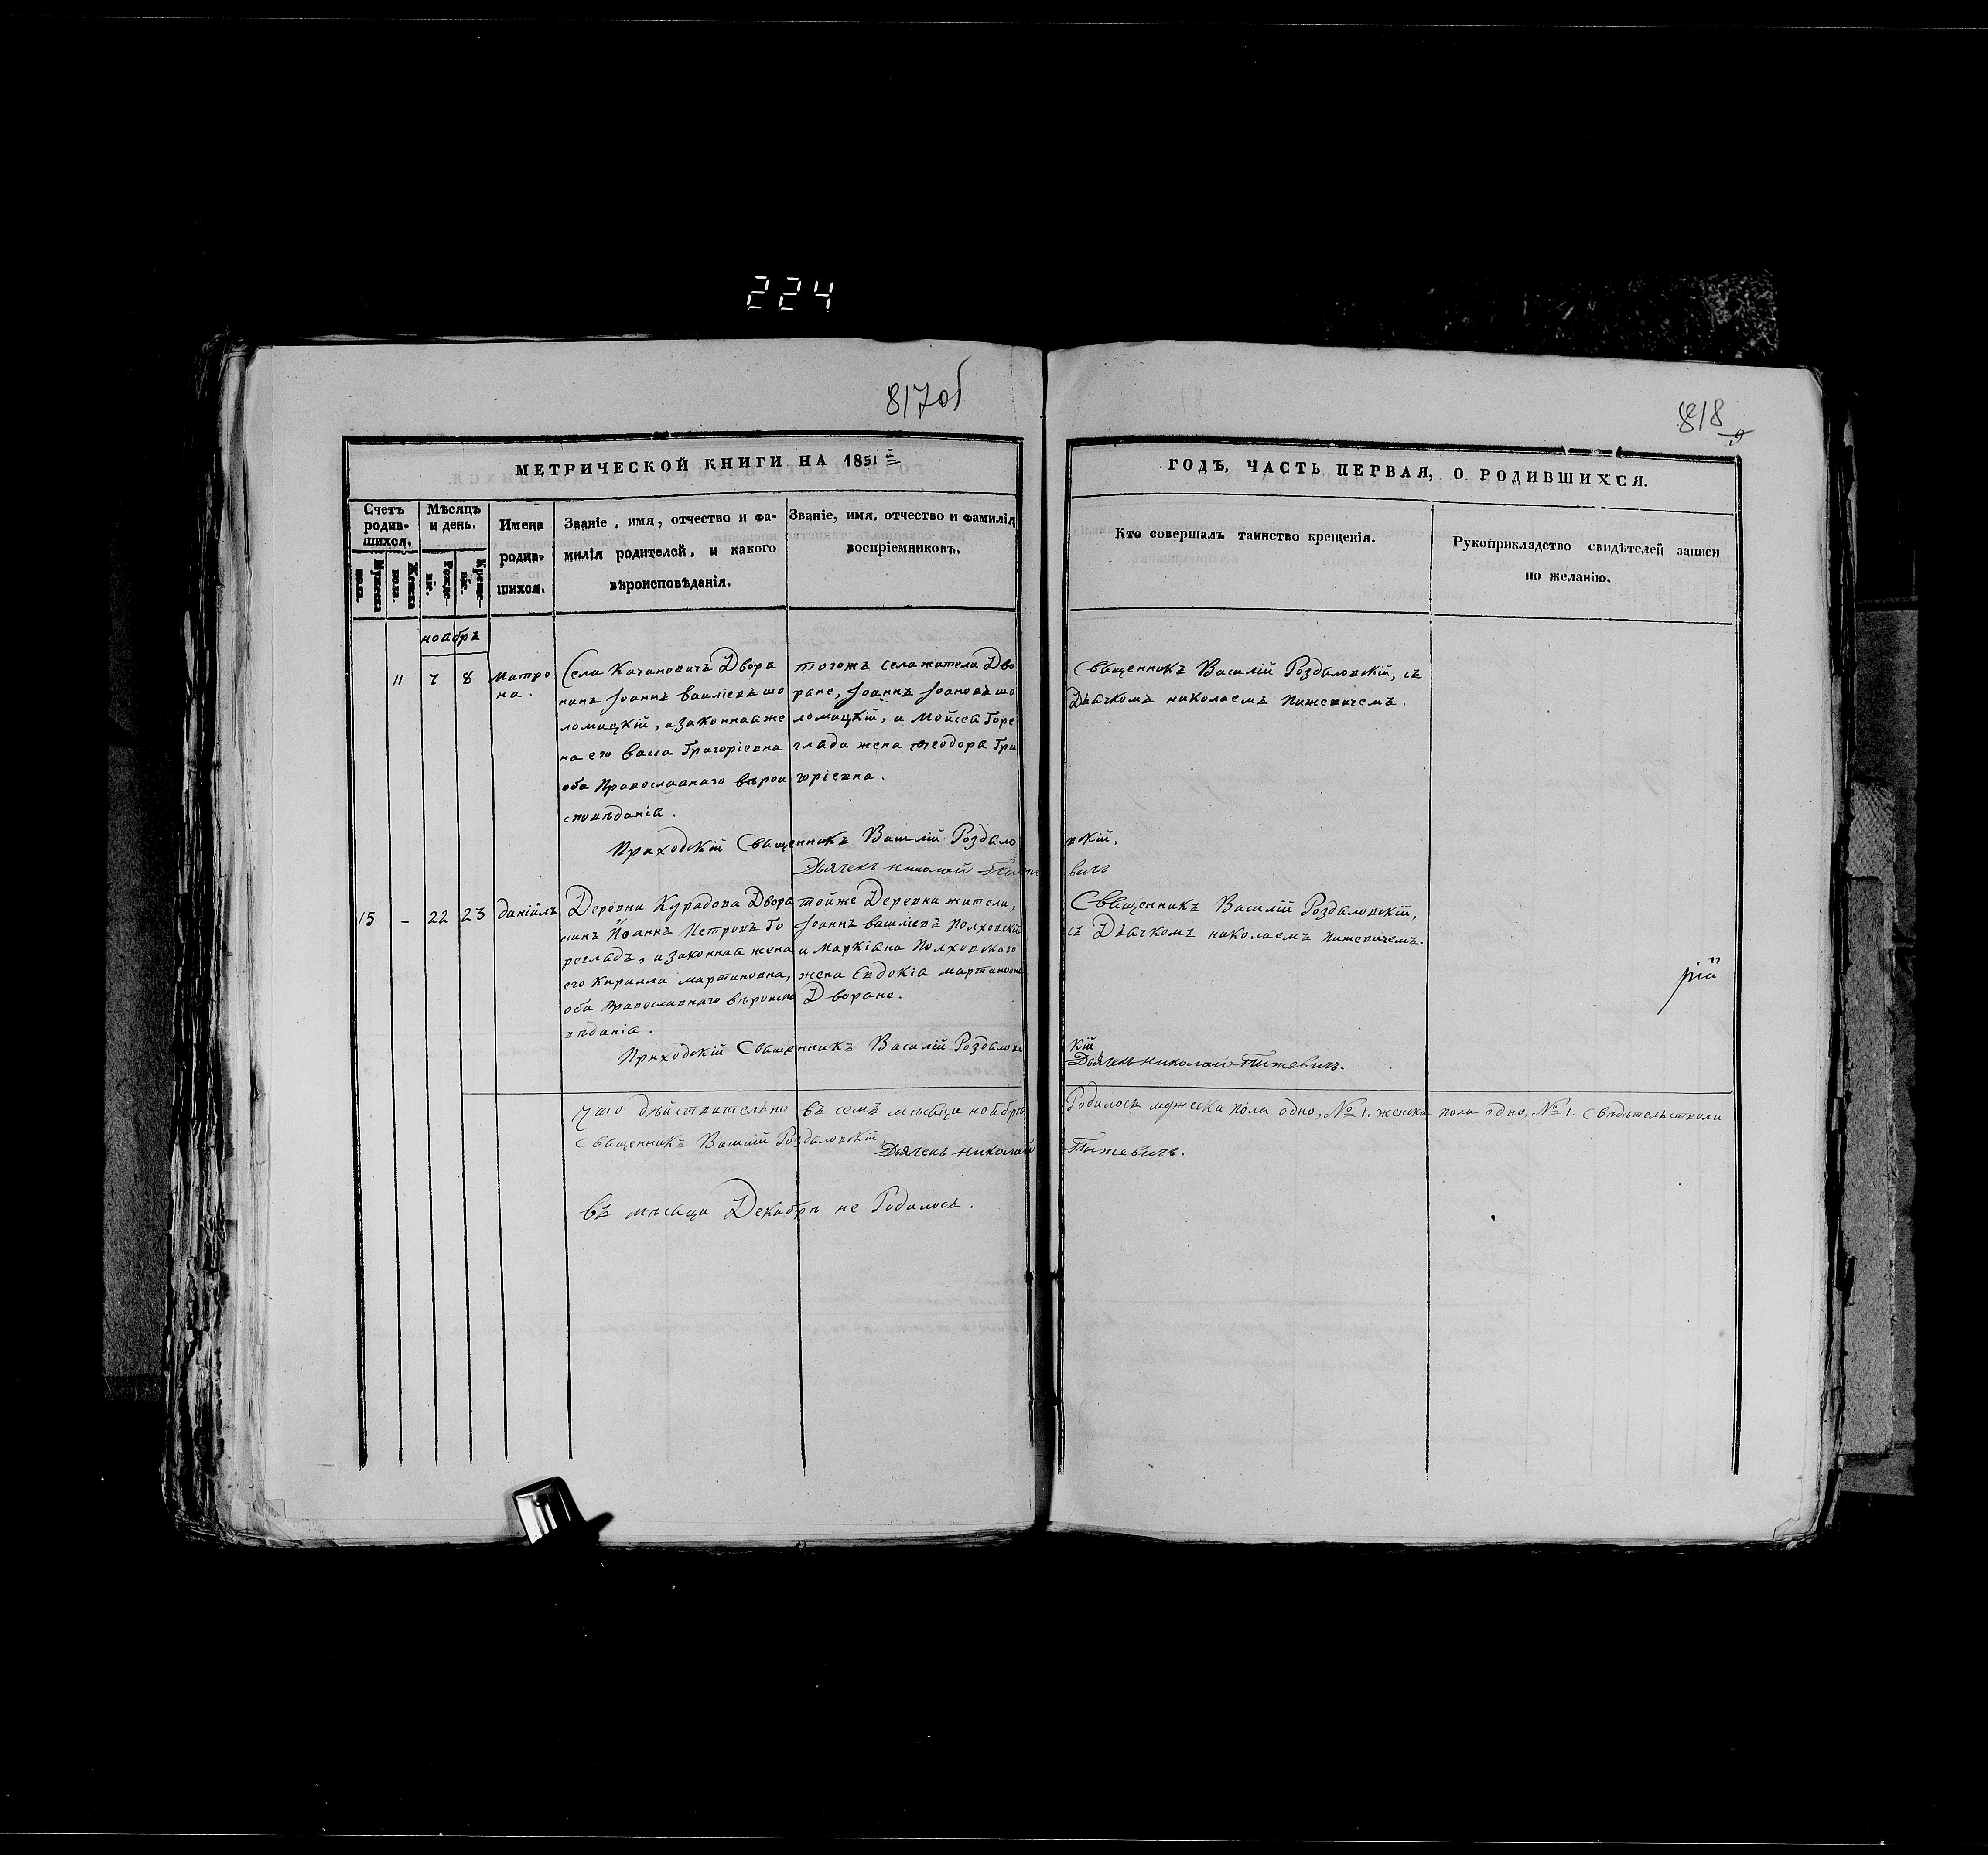 224
817об
818
МЕТРИЧЕСКОЙ КНИГИ НА 1851й
ГОДЪ, ЧАСТЬ ПЕРВАЯ, О РОДИВШИХСЯ.
Счетъ родив-
шихся.
Мужеска
пола.
Женска
пола.
Мѣсяцъ
и день.
Рожде-
нія.
Креще-
нія.
Имена
родив-
шихся.
Званіе, имя, отчество и фа-
милія родителей, и какого
вѣроисповѣданія.
Званіе, имя, отчество и фамилія
воспріемниковъ.
Кто совершалъ таинство крещенія.
Рукоприкладство свидѣтелей записи
по желанію.
ноабрь
11 7 8
Матро
на.
Села Качановичъ Двора
нинъ Іоаннъ Василіевъ шо
ломицкій, изаконнаяже
на его Васса Григоріевна
оба Православнаго вѣрои
сповѣданія.
тогожъ села жители Дво
ране, Іоаннъ Іоановъ шо
ломицкій, и Мойсея Горе
глада жена Феодора Гри
горіевна.
Священникъ Василій Роздаловскій, съ
Дьячкомъ николаемъ Пижевичемъ.
Приходскій Священникъ Василій Роздало
вскій.
Дьячекъ Николай Пиже
вичъ
15 - 22 23
Даніилъ
Деревни Курадова Двора
нинъ Иоаннъ Петровъ Го
регладъ, изаконная жена
его Кирилла мартиновна,
оба Православнаго вѣроиспо
вѣданія.
тойже Деревни жители,
Іоаннъ василіевъ Полховскій
и Маркіана Полховскаго
жена Евдокіа мартиновна
Дворане.
Священникъ Василій Роздаловскій,
съ Дьячкомъ николаемъ Пижевичемъ.
рій
Приходскій Священникъ Василій Роздаловс
кій
Дьячекъ Николай Пижевичъ.
Что дѣйствительно въ семъ мѣсяцѣ ноабрѣ
Родилось мужеска пола одно, № 1. женска пола одно, № 1. Свѣдѣтельстволи
Священникъ Василій Роздаловскій
Дьячекъ Николай
Пижевичъ.
Въ мѣсяцѣ Декабрѣ не Родилось.